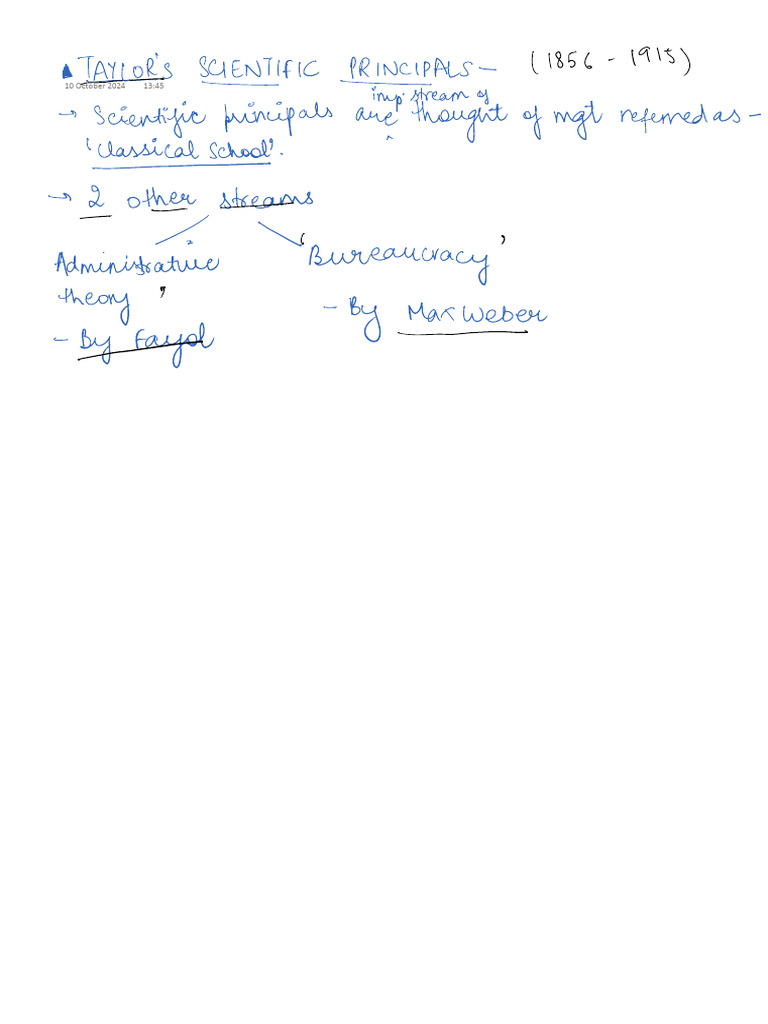 ▲ TAYLOR'S SCIENTIFIC PRINCIPALS — (1856 - 1915)
10 October 2024 13:45
imp. stream of
→ Scientific principals are ^ thought of mgt referred as —
'Classical School'.
→ 2 other streams
Administrative 'Bureaucracy'
theory'
- By Fayol - By Max Weber